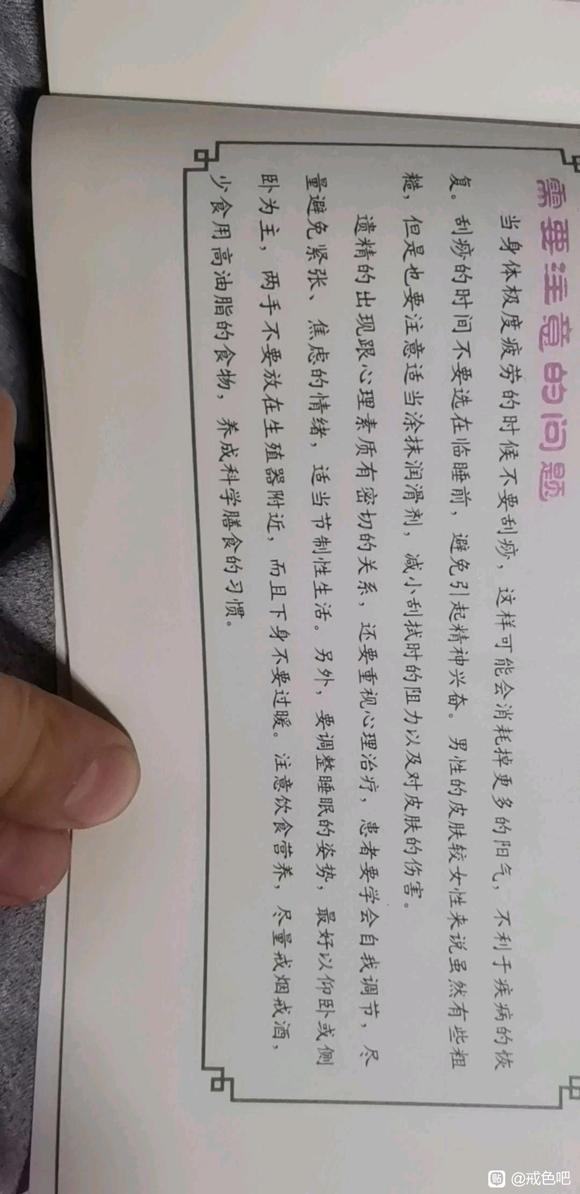 需要注意的问题
当身体极度疲劳的时候不要刮痧，这样可能会消耗掉更多的阳气，不利于疾病的恢
复。刮痧的时间不要选在临睡前，避免引起精神兴奋。男性的皮肤较女性来说虽然有些粗
糙，但是也要注意适当涂抹润滑剂，减小刮拭时的阻力以及对皮肤的伤害。
遗精的出现跟心理素质有密切的关系，还要重视心理治疗，患者要学会自我调节，尽
量避免紧张、焦虑的情绪，适当节制性生活。另外，要调整睡眠的姿势，最好以仰卧或侧
卧为主，两手不要放在生殖器附近，而且下身不要过暖。注意饮食营养，尽量戒烟戒酒，
少食用高油脂的食物，养成科学膳食的习惯。
贴 @戒色吧